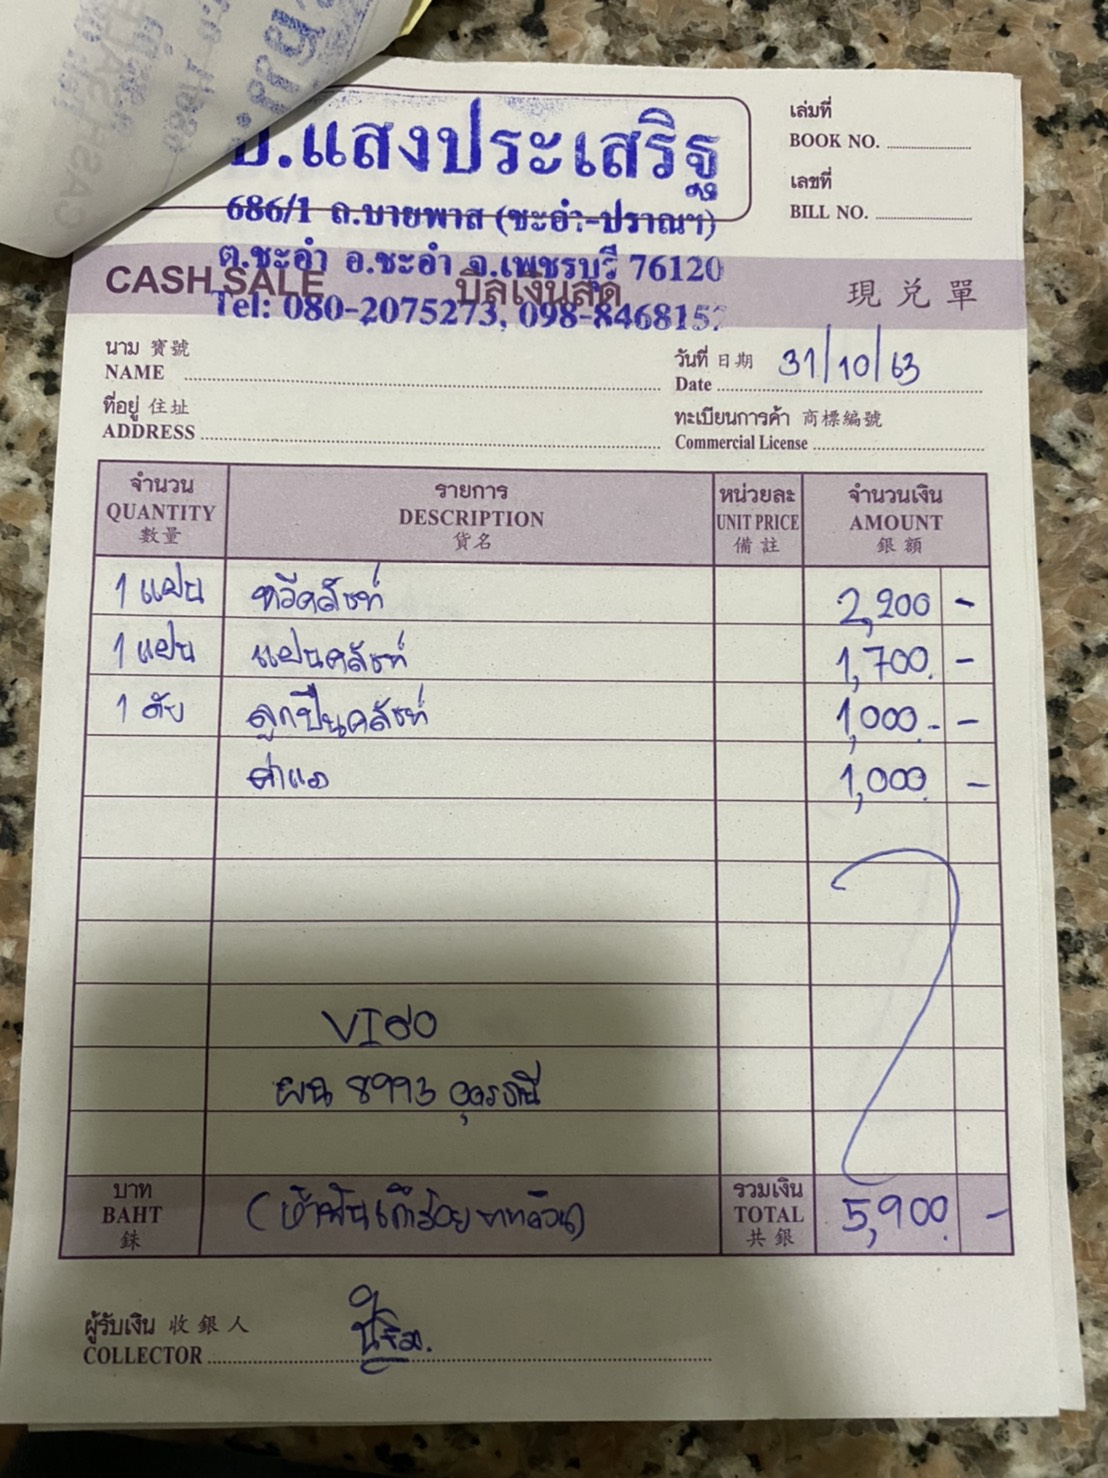 .แสงประเสริฐ
686/1 ถ.บายพาส (ชะอำ-ปราณฯ)
ต.ชะอำ อ.ชะอำ จ.เพชรบุรี 76120
Tel: 080-2075273, 098-846815
เล่มที่
BOOK NO.
เลขที่
BILL NO.
CASH SALE บิลเงินสด 現兌單
นาม 寶號
NAME
วันที่ 日期 31/10/63
Date
ที่อยู่ 住址
ADDRESS
ทะเบียนการค้า 商標編號
Commercial License
จำนวน รายการ หน่วยละ จำนวนเงิน
QUANTITY DESCRIPTION UNIT PRICE AMOUNT
數量 貨名 備註 銀額
1 แผ่น หวีคลัชท์ 2,200 -
1 แผ่น แผ่นคลัชท์ 1,700. -
1 ลูกปืนคลัชท์ 1,000.- -
ค่าแรง 1,000. -
VIGO
ผน 8993 อุดรธานี
บาท รวมเงิน
BAHT (ห้าพันเก้าร้อยบาทถ้วน) TOTAL 5,900. -
銖 共銀
ผู้รับเงิน 收銀人
COLLECTOR